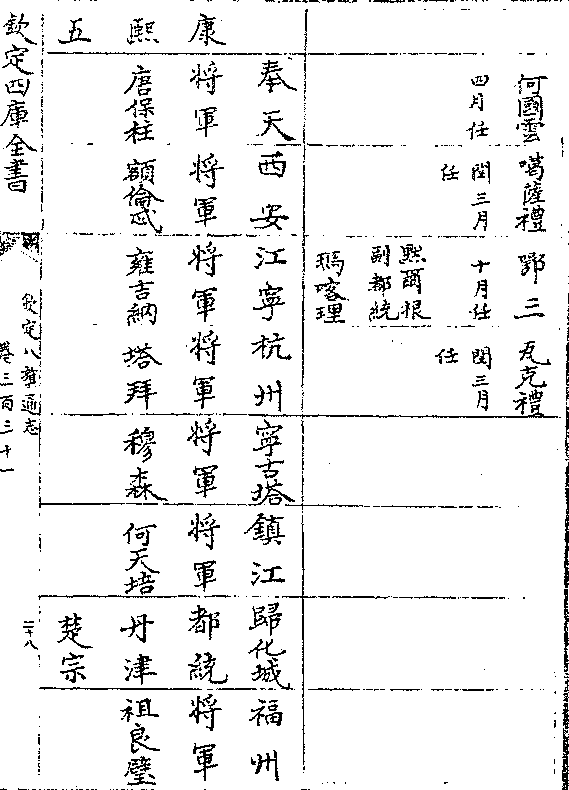 何國雲　噶薩禮　鄂三　瓦克禮
四月任　閏三月　十月任　閏三月
任　任
黙爾根
副都統
瑪喀理
康熙五
奉天　西安　江寧　杭州　寧古塔　鎮江　歸化城　福州
將軍　將軍　將軍　將軍　將軍　將軍　都統　將軍
唐保柱　額倫忒　雍吉納　塔拜　穆森　何天培　丹津　祖良璧
楚宗
欽定四庫全書
欽定八旗通志
卷三百三十一
二十八